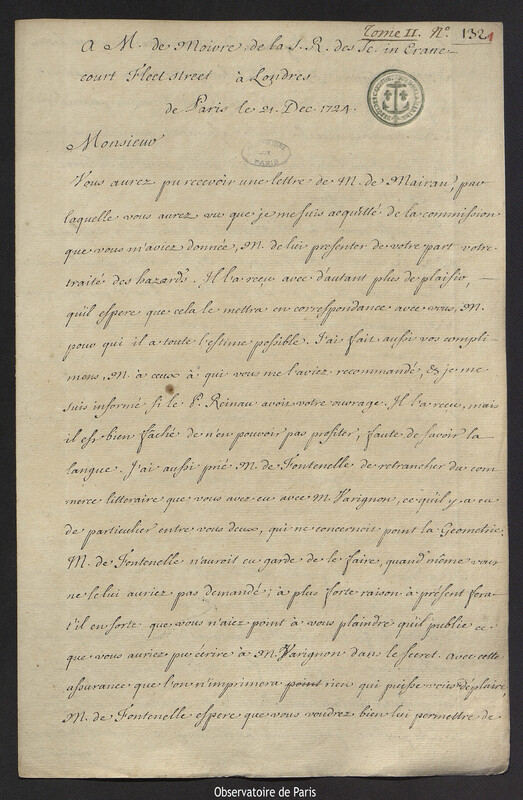 Tome II. N.º 132
A M. de Moivre de la S. R. des Sc. in Crane-
court Fleet street à Londres
de Paris le 21. Dec. 1724.
Monsieur
Vous aurez pu recevoir une lettre de M. de Mairan, par
laquelle vous aurez vu que je me suis acquitté de la commission
que vous m'aviez donnée, M. de lui presenter de votre part votre
traité des hazards. Il l'a reçu avec d'autant plus de plaisir,
qu'il espere que cela le mettra en correspondance avec vous, M.
pour qui il a toute l'estime possible. J'ai fait aussi vos compli-
mens, M. à ceux à qui vous me l'aviez recommandé, & je me
suis informé si le P. Reinau avoit votre ouvrage. Il l'a reçu, mais
il est bien faché de n'en pouvoir pas profiter, faute de savoir la
langue. J'ai aussi prié M. de Fontenelle de retrancher du com
merce litteraire que vous avez eu avec M. Varignon, ce qu'il y a eu
de particulier entre vous deux, qui ne concernoit point la Geometrie.
M. de Fontenelle n'auroit eu garde de le faire, quand même vous
ne le lui auriez pas demandé; à plus forte raison à présent fera-
t'il en sorte que vous n'aiez point à vous plaindre qu'il publie ce
que vous auriez pu écrire à M. Varignon dans le secret. Avec cette
assurance que l'on n'imprimera point rien qui puisse vous déplaire,
M. de Fontenelle espere que vous voudrez bien lui permettre de
Observatoire de Paris